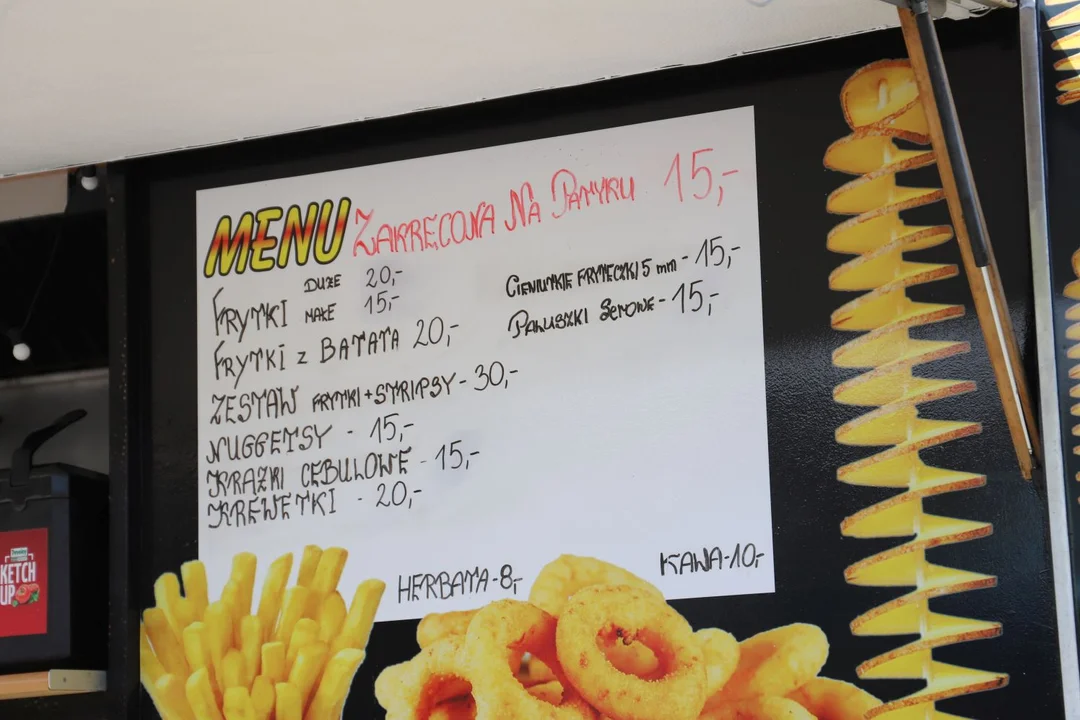 MENU ZAKRĘCONA NA PATYKU 15,-
FRYTKI DUŻE 20,-
MAŁE 15,-
CIENIUTKIE FRYTECZKI 5 mm - 15,-
FRYTKI Z BATATA 20,-
PAŁUSZKI SEROWE - 15,-
ZESTAW FRYTKI + STRIPSY - 30,-
NUGGETSY - 15,-
KRĄŻKI CEBULOWE - 15,-
KREWETKI - 20,-
HERBATA - 8,-
KAWA - 10,-
KETCH
UP